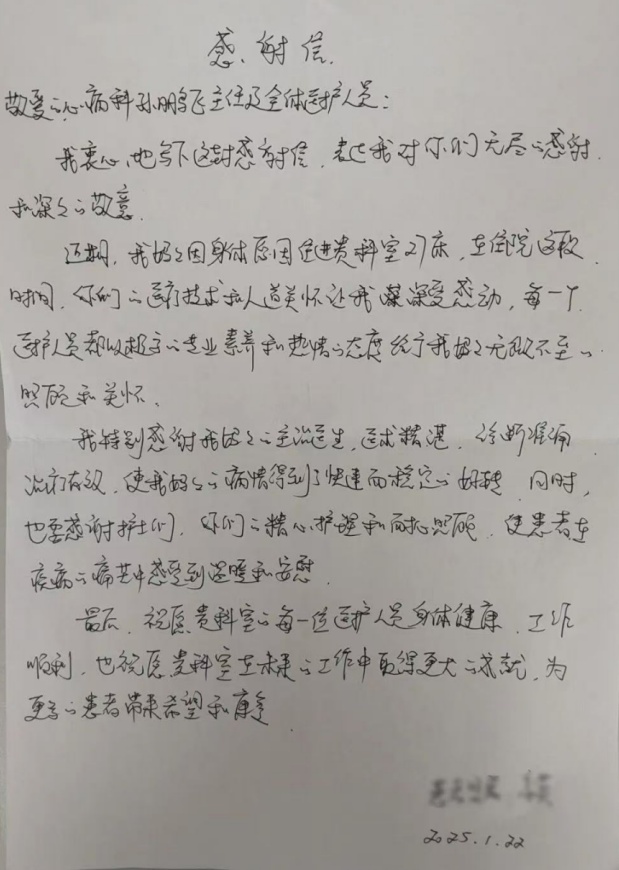 感谢信
敬爱的心病科孙鹏飞主任及全体医护人员：
我衷心地写下这封感谢信，表达我对你们无尽的感谢
和深深的敬意。
近期，我妈妈因身体原因住进贵科室27床，在住院这段
时间，你们的医疗技术和人道关怀让我深深受感动，每一个
医护人员都以极高的专业素养和热情的态度给予我妈妈无微不至的
照顾和关怀、
我特别感谢我妈妈的主治医生，医术精湛，诊断准确，
治疗有效，使我妈妈的病情得到了快速而稳定的好转，同时，
也要感谢护士们，你们的精心护理和耐心照顾，使患者在
疾病的痛苦中感受到温暖和安慰.
最后，祝愿贵科室的每一位医护人员身体健康，工作
顺利，也祝愿贵科室在未来的工作中取得更大的成就，为
更多的患者带来希望和康复
2025.1.22